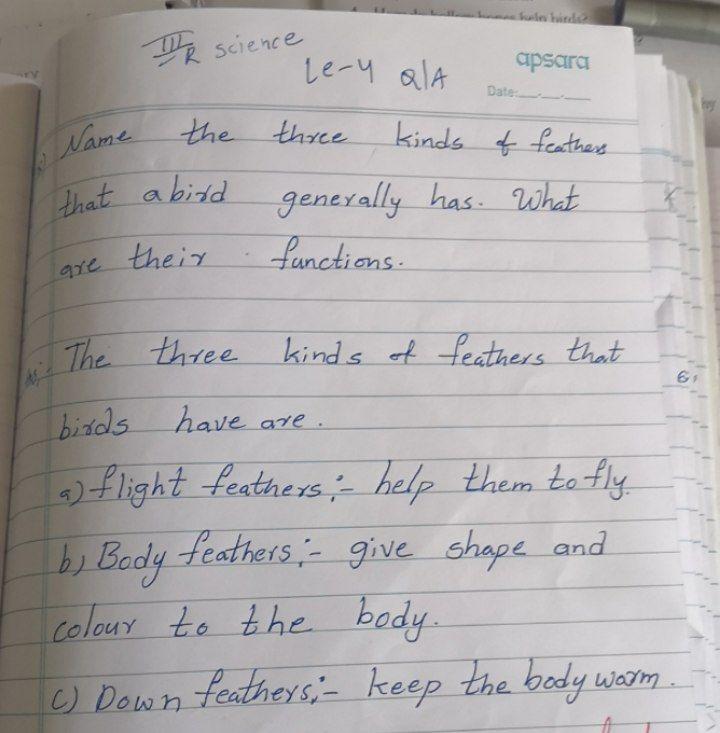 III R science
Le-4 Q/A
apsara
Date:
Name the three kinds of feathers
that a bird generally has. What
are their functions.
Ans:- The three kinds of feathers that
birds have are.
a) flight feathers:- help them to fly.
b) Body feathers:- give shape and
colour to the body.
c) Down feathers:- keep the body warm.